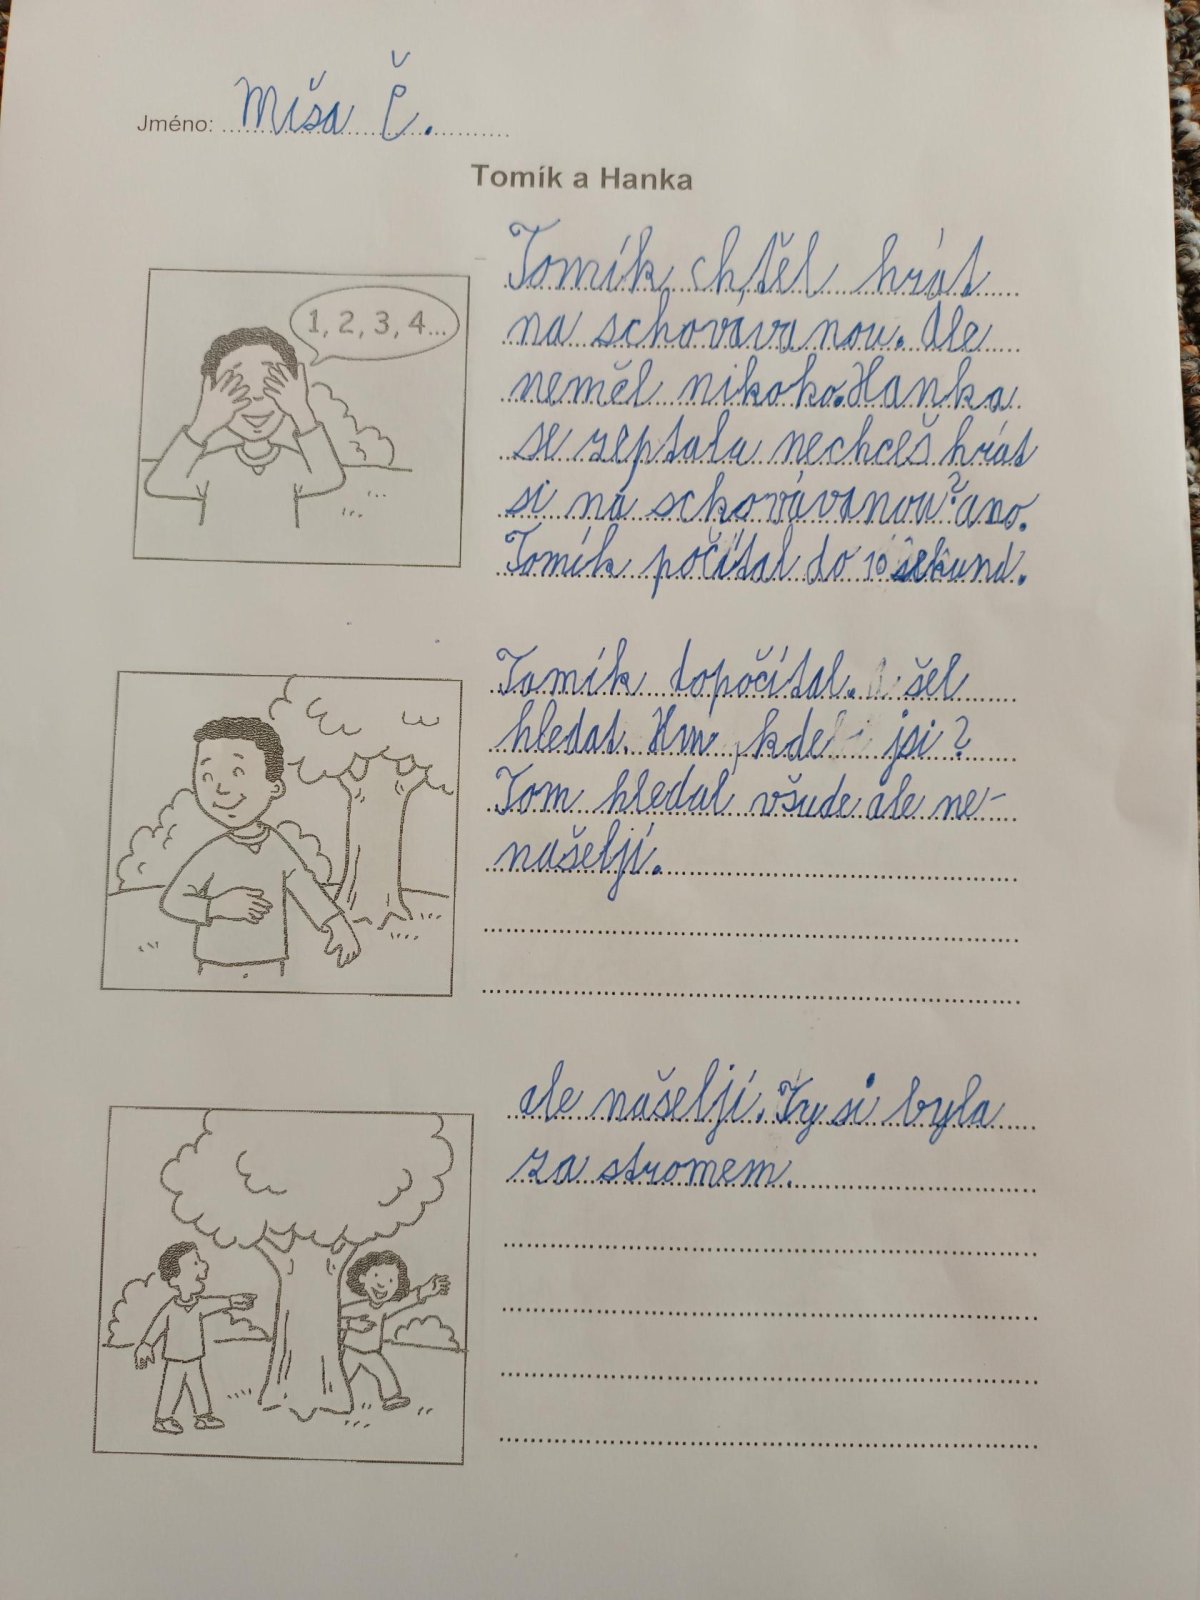 Jméno: Míša Č.
Tomík a Hanka
1, 2, 3, 4...
Tomík chtěl hrát
na schovávanou. Ale
neměl nikoko. Hanka
se zeptala nechceš hrát
si na schovávanou? ano.
Tomík počítal do 10 sekund.
Tomík topočítal. šel
hledat. Hm, kde jsi?
Tom hledal všude ale ne-
našeljí.
ale našeljí. Ty si byla
za stromem.